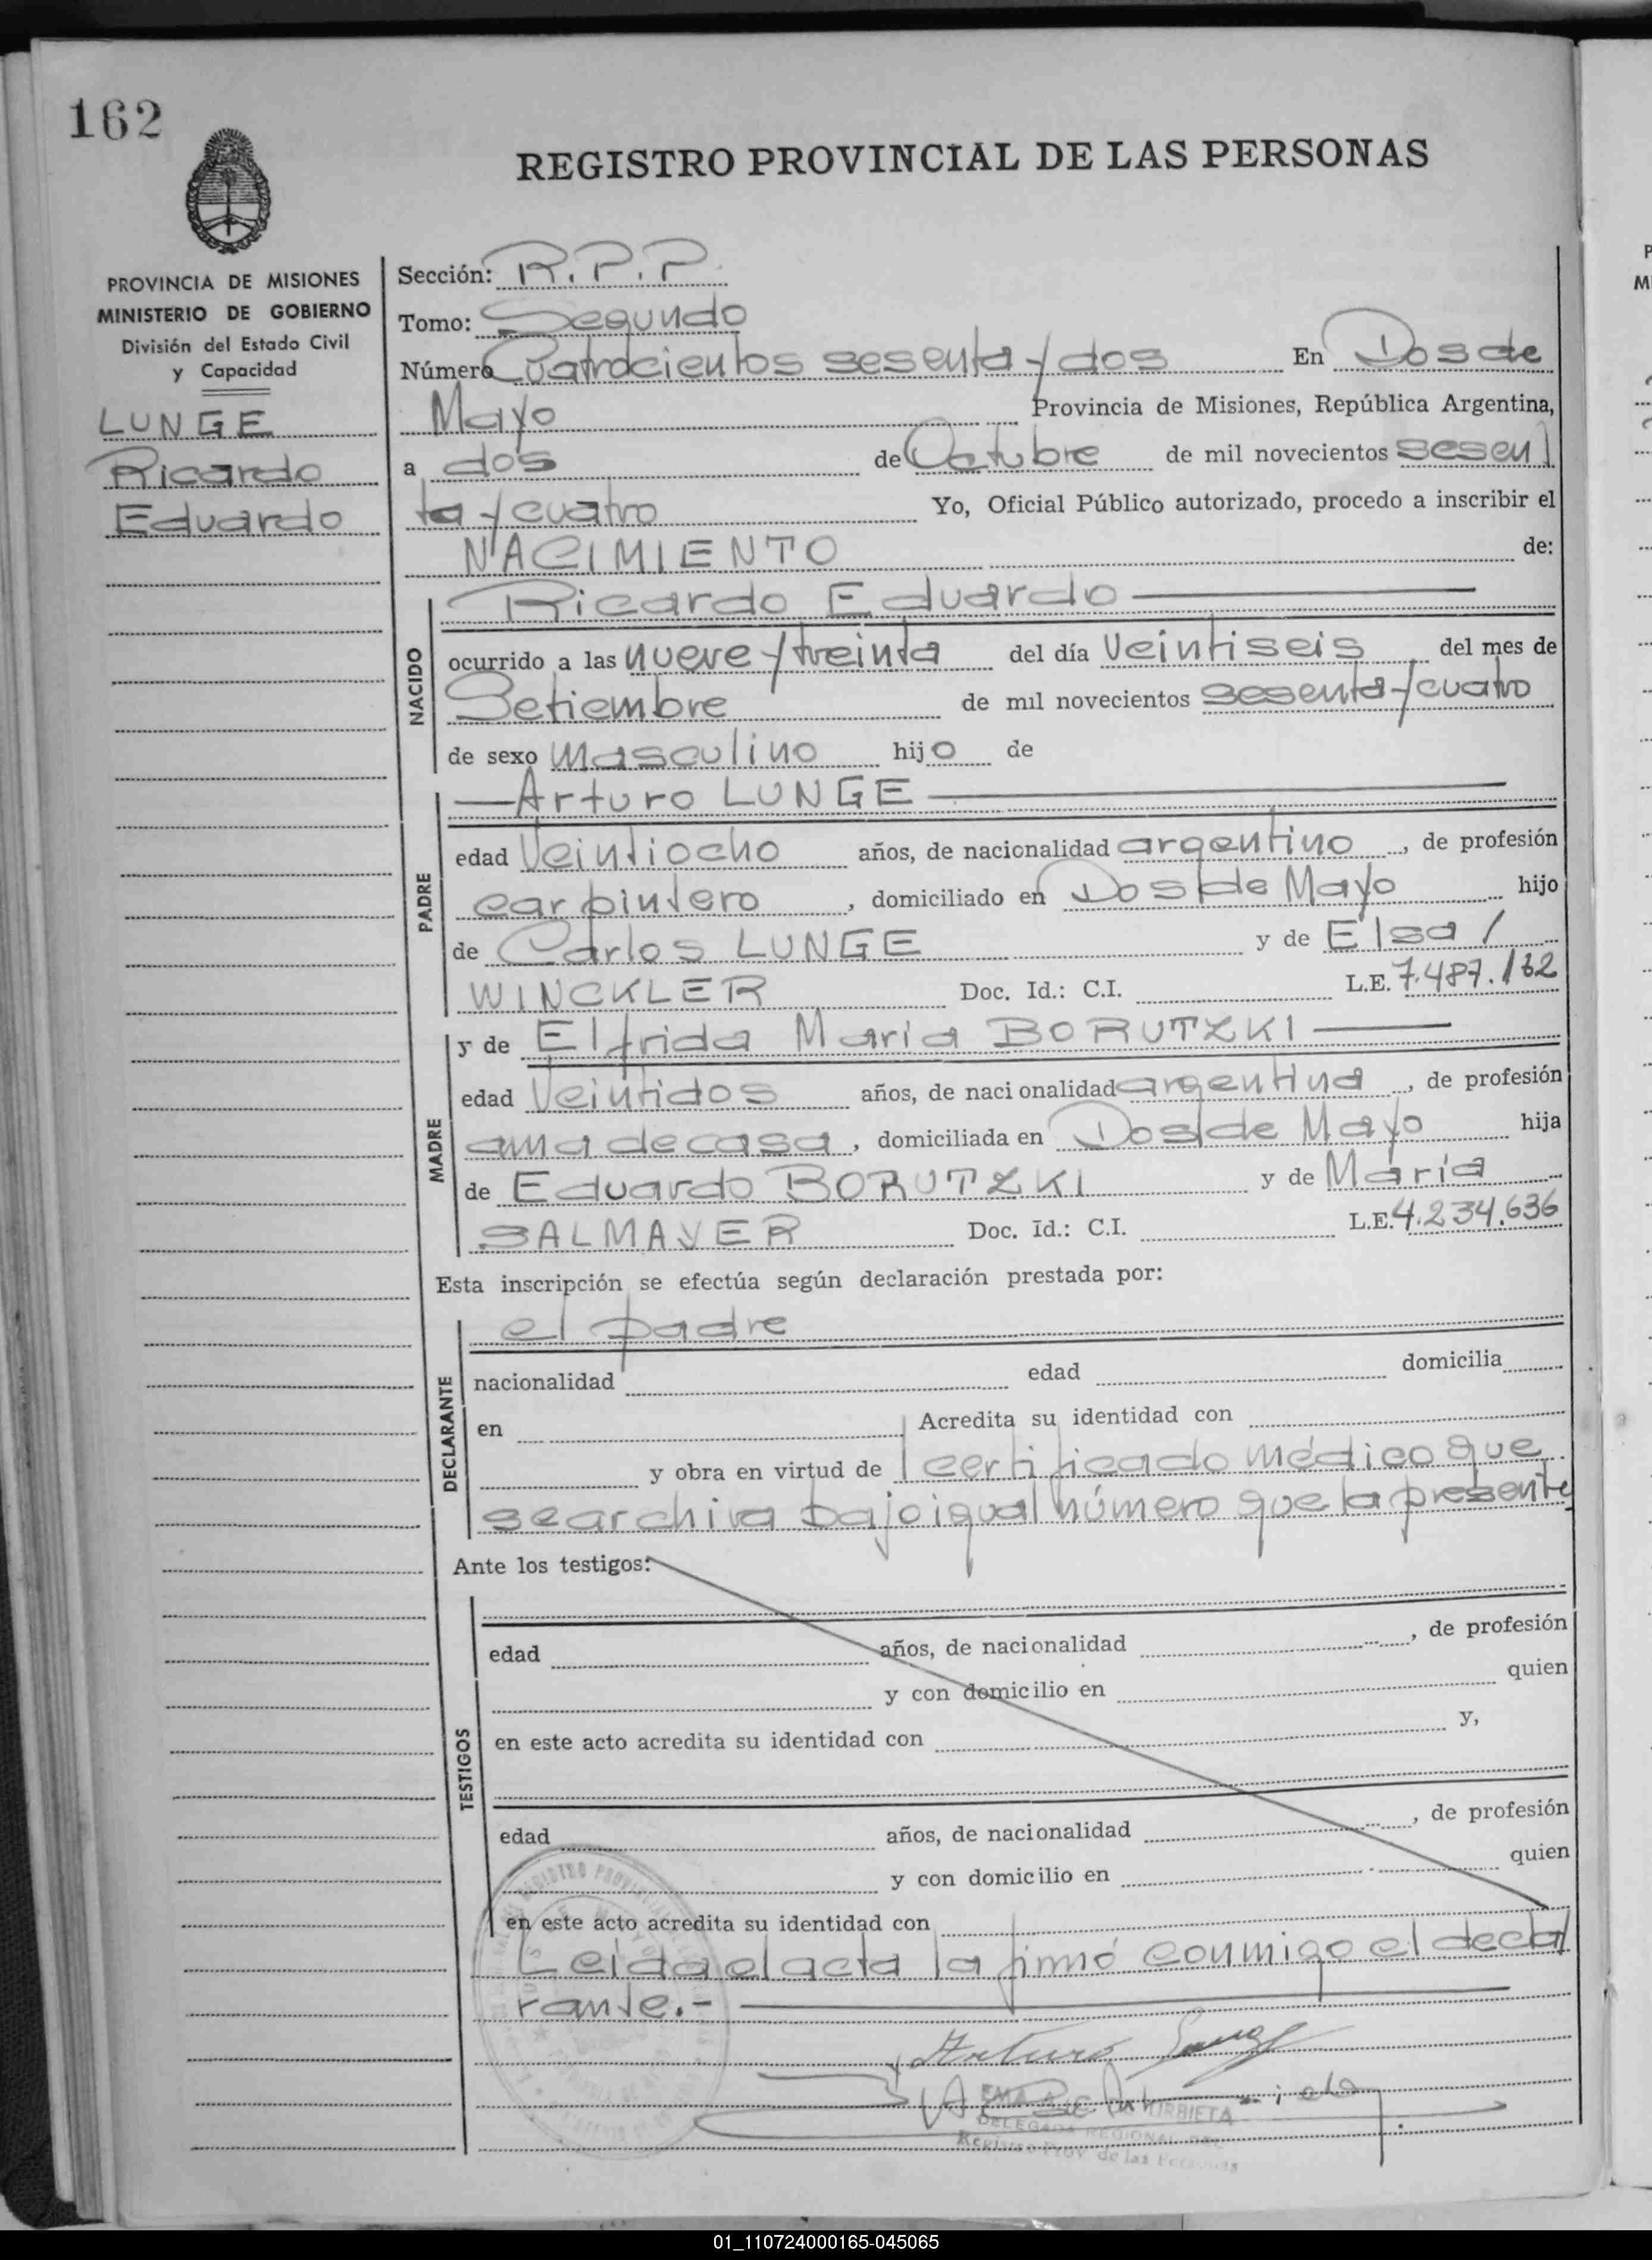 162
REGISTRO PROVINCIAL DE LAS PERSONAS
PROVINCIA DE MISIONES
MINISTERIO DE GOBIERNO
División del Estado Civil
y Capacidad
LUNGE
Ricardo
Eduardo
Sección: R.P.P.
Tomo: Segundo
Número Cuatrocientos sesenta y dos En Dos de
Mayo Provincia de Misiones, República Argentina,
a dos de Octubre de mil novecientos sesen/
ta y cuatro Yo, Oficial Público autorizado, procedo a inscribir el
NACIMIENTO de:
NACIDO
Ricardo Eduardo
ocurrido a las nueve y treinta del día Veintiseis del mes de
Setiembre de mil novecientos sesenta y cuatro
de sexo masculino hijo de
PADRE
Arturo LUNGE
edad Veintiocho años, de nacionalidad argentino, de profesión
carpintero, domiciliado en Dos de Mayo hijo
de Carlos LUNGE y de Elsa /
WINCKLER Doc. Id.: C.I. L.E. 7.487.132
MADRE
y de Elfrida Maria BORUTZKI
edad Veintidos años, de nacionalidad argentina, de profesión
ama de casa, domiciliada en Dos de Mayo hija
de Eduardo BORUTZKI y de María
SALMAYER Doc. Id.: C.I. L.E. 4.234.636
Esta inscripción se efectúa según declaración prestada por:
DECLARANTE
el padre
nacionalidad edad domicilia
en Acredita su identidad con
y obra en virtud de certificado médico que
se archiva bajo igual número que la presente
Ante los testigos:
TESTIGOS
edad años, de nacionalidad , de profesión
y con domicilio en quien
en este acto acredita su identidad con y,
edad años, de nacionalidad , de profesión
y con domicilio en quien
en este acto acredita su identidad con
Leida el acta la firmó conmigo el decla/
rante.-
Arturo Lunge
DELEGADA REGIONAL
Registro Prov. de las Personas
01_110724000165-045065